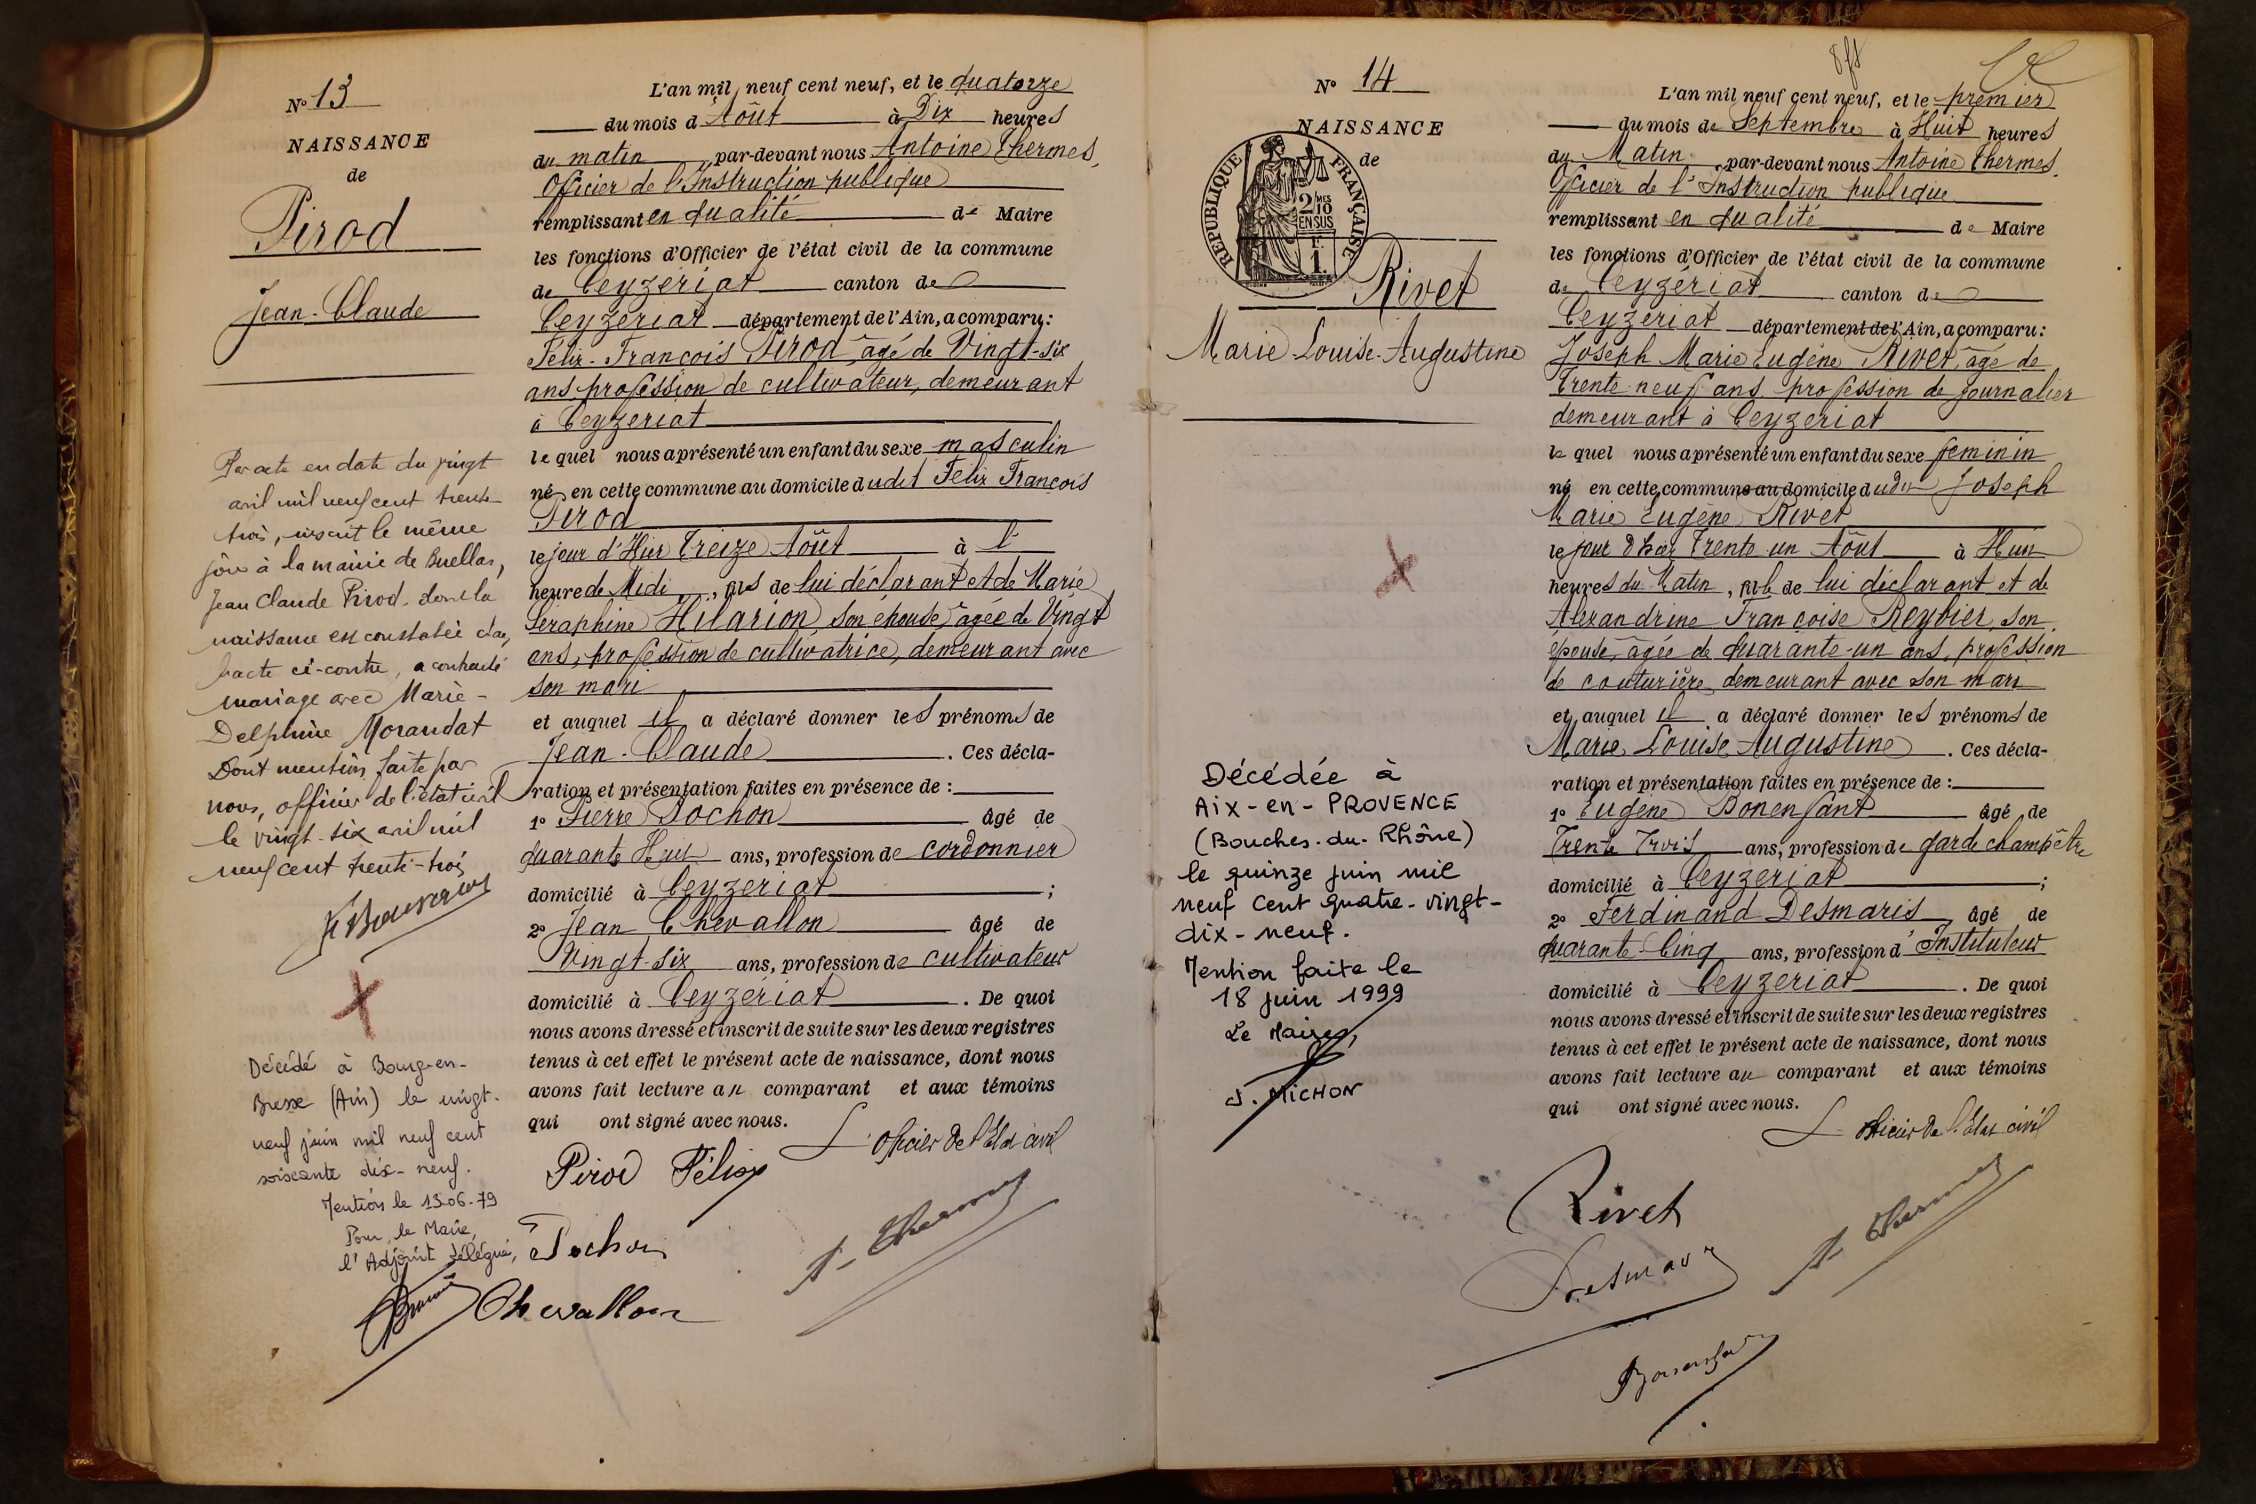 N° 13
NAISSANCE
de
Pirod
Jean-Claude
Par acte en date du vingt
avril mil neuf cent trente-
trois, inscrit le même
jour à la mairie de Buellas,
Jean Claude Pirod, dont la
naissance est constatée dans
l'acte ci-contre, a contracté
mariage avec Marie-
Delphine Morandat
Dont mention faite par
nous, officier de l'état civil
le vingt-six avril mil
neuf cent trente-trois
Décédé à Bourg-en-
Bresse (Ain) le vingt-
neuf juin mil neuf cent
soixante dix-neuf.
Mention le 13-06-79
Pour le Maire,
l'Adjoint délégué,
L'an mil neuf cent neuf, et le quatorze
du mois d'Aôut à Dix heures
du matin, par-devant nous Antoine Thermes,
Officier de l'Instruction publique
remplissant en qualité de Maire
les fonctions d'Officier de l'état civil de la commune
de Ceyzeriat canton de
Ceyzeriat département de l'Ain, a comparu:
Felix-François Pirod, âgé de Vingt-six
ans, profession de cultivateur, demeurant
à Ceyzeriat
lequel nous a présenté un enfant du sexe masculin
né en cette commune au domicile dudit Felix François
Pirod
le jour d'Hier Treize Aôut à l'
heure de Midi, fils de lui déclarant et de Marie
Séraphine Hilarion, son épouse, âgée de Vingt
ans, profession de cultivatrice, demeurant avec
son mari
et auquel il a déclaré donner les prénoms de
Jean-Claude. Ces décla-
ration et présentation faites en présence de :
1° Pierre Pochon âgé de
quarante Huit ans, profession de cordonnier
domicilié à Ceyzeriat ;
2° Jean Chevallon âgé de
Vingt-six ans, profession de cultivateur
domicilié à Ceyzeriat. De quoi
nous avons dressé et inscrit de suite sur les deux registres
tenus à cet effet le présent acte de naissance, dont nous
avons fait lecture au comparant et aux témoins
qui ont signé avec nous.
L'officier de l'état civil
Pirod Félix
Pochon
A. Thermes
Chevallon
N° 14
NAISSANCE
de
REPUBLIQUE FRANÇAISE
2 MES
10
EN SUS
1 F.
1.
Rivet
Marie Louise-Augustine
Décédée à
Aix-en-PROVENCE
(Bouches-du-Rhône)
le quinze juin mil
neuf cent quatre-vingt-
dix-neuf.
Mention faite le
18 juin 1999
Le Maire,
J. MICHON
L'an mil neuf cent neuf, et le premier
du mois de Septembre à Huit heures
du Matin, par-devant nous Antoine Thermes,
Officier de l'Instruction publique
remplissant en qualité de Maire
les fonctions d'Officier de l'état civil de la commune
de Ceyzériat canton de
Ceyzériat département de l'Ain, a comparu:
Joseph Marie Eugène Rivet, âgé de
Trente-neuf ans, profession de journalier
demeurant à Ceyzeriat
lequel nous a présenté un enfant du sexe feminin
né en cette commune au domicile dudit Joseph
Marie Eugène Rivet
le jour d'hier Trente un Aôut à Huit
heures du Matin, fille de lui déclarant et de
Alexandrine Françoise Reybier, son
épouse, âgée de quarante-un ans, profession
de couturière, demeurant avec son mari
et auquel il a déclaré donner les prénoms de
Marie Louise Augustine. Ces décla-
ration et présentation faites en présence de :
1° Eugène Bonenfant âgé de
Trente Trois ans, profession de garde champêtre
domicilié à Ceyzeriat ;
2° Ferdinand Desmaris, âgé de
quarante-Cinq ans, profession d'Instituteur
domicilié à Ceyzeriat. De quoi
nous avons dressé et inscrit de suite sur les deux registres
tenus à cet effet le présent acte de naissance, dont nous
avons fait lecture au comparant et aux témoins
qui ont signé avec nous.
L'officier de l'état civil
Rivet
A. Thermes
Desmaris
Bonenfant